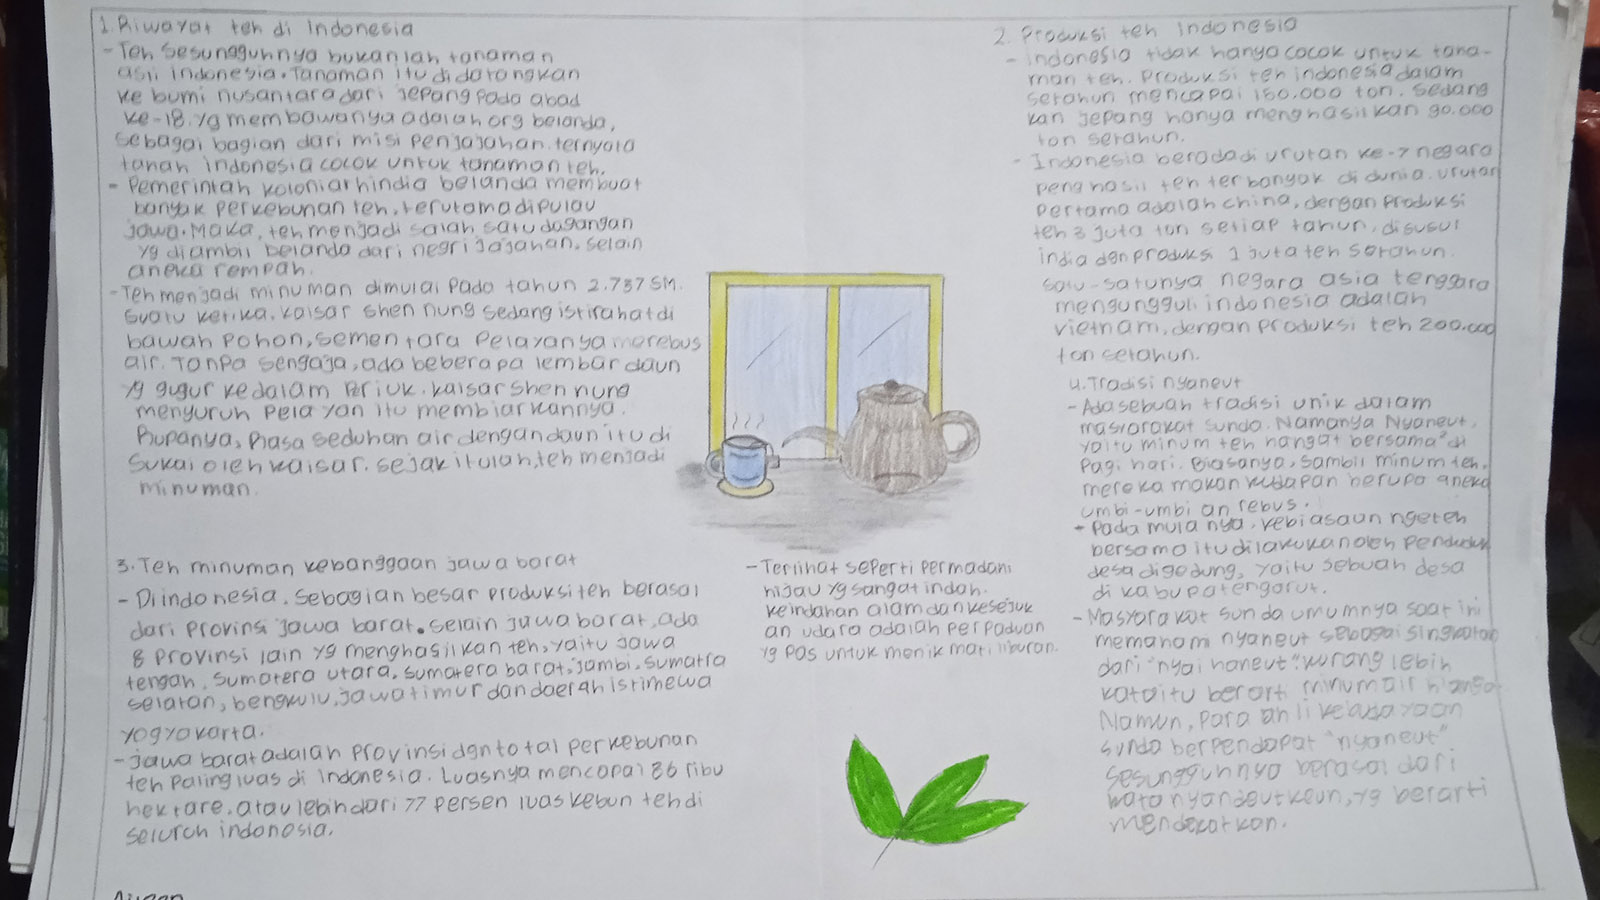 1. Riwayat teh di Indonesia
- Teh sesungguhnya bukanlah tanaman
asli Indonesia. Tanaman itu didatangkan
ke bumi nusantara dari jepang pada abad
ke-18. yg membawanya adalah org belanda,
sebagai bagian dari misi penjajahan. ternyata
tanah indonesia cocok untuk tanaman teh.
- Pemerintah kolonial hindia belanda membuat
banyak perkebunan teh, terutama di pulau
jawa. Maka, teh menjadi salah satu dagangan
yg diambil belanda dari negri jajahan. selain
aneka rempah.
- Teh menjadi minuman dimulai Pada tahun 2.737 SM.
suatu ketika, kaisar shen nung sedang istirahat di
bawah pohon, sementara pelayanya merebus
air. Tanpa sengaja, ada beberapa lembar daun
yg gugur kedalam Periuk. kaisar shen nung
menyuruh pelayan itu membiarkannya.
Rupanya, Rasa seduhan air dengan daun itu di
sukai oleh kaisar. sejak itulah, teh menjadi
minuman.
2. Produksi teh Indonesia
- Indonesia tidak hanya cocok untuk tana-
man teh. Produksi teh indonesia dalam
setahun mencapai 150.000 ton. sedang
kan jepang hanya menghasilkan 90.000
ton setahun.
- Indonesia berada di urutan ke-7 negara
penghasil teh terbanyak di dunia. urutan
pertama adalah china, dengan produksi
teh 3 juta ton setiap tahun, disusul
india dgn produksi 1 juta teh setahun.
satu-satunya negara asia tenggara
mengungguli indonesia adalah
vietnam, dengan produksi teh 200.000
ton setahun.
4. Tradisi nyaneut
- Ada sebuah tradisi unik dalam
masyarakat sunda. Namanya Nyaneut,
yaitu minum teh hangat bersama" di
pagi hari. Biasanya, sambil minum teh,
mereka makan kudapan berupa aneka
umbi-umbian rebus.
- Pada mula nya, kebiasaan ngeteh
bersama itu dilakukan oleh penduduk
desa digedung, yaitu sebuah desa
di kabupaten garut.
- Masyarakat sunda umumnya saat ini
memahami nyaneut sebagai singkatan
dari "nyai haneut". kurang lebih
kata itu berarti minum air hangat
Namun, para ahli kebudayaan
sunda berpendapat "nyaneut"
sesungguhnya berasal dari
yg berarti
mendekatkan.
3. Teh minuman kebanggaan jawa barat
- Di indonesia, sebagian besar produksi teh berasal
dari provinsi jawa barat. selain jawa barat, ada
8 provinsi lain yg menghasilkan teh, yaitu jawa
tengah, sumatera utara, sumatera barat, jambi, sumatra
selatan, bengkulu, jawa timur dan daerah istimewa
yogyakarta.
- jawa barat adalah provinsi dgn total perkebunan
teh paling luas di indonesia. Luasnya mencapai 86 ribu
hektare, atau lebih dari 77 persen luas kebun teh di
seluruh indonesia.
- Terlihat seperti permadani
hijau yg sangat indah.
keindahan alam dan kesejuk
an udara adalah perpaduan
yg pas untuk menikmati liburan.